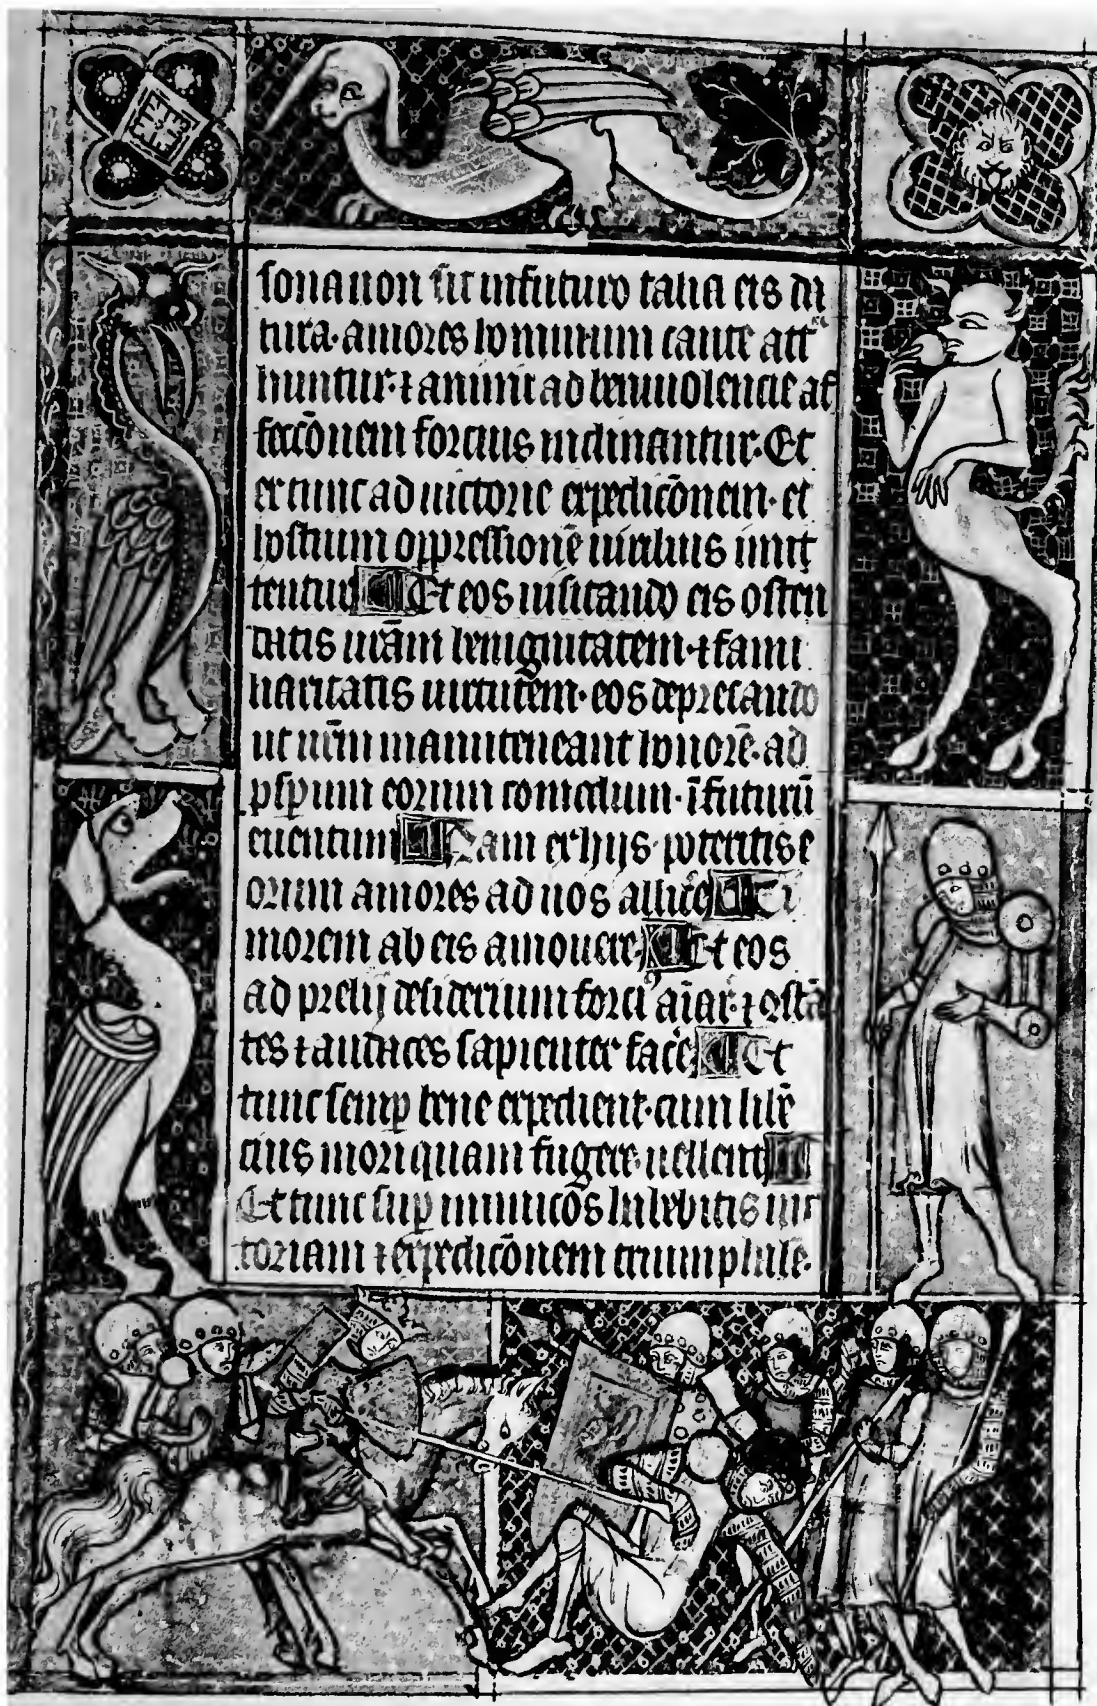 sona non sit infuturo talia eis da
tura· amores hominum caute att
huntur· ⁊ animi ad beniuolencie af
feccōnem forcius inclinantur· Et
ex tunc ad uictorie expedicōnem· et
hostium oppressionē uirilius
tentur ¶ Et eos uisitando eis osten
datis urām benignitatem· ⁊ fami
liaritatis uirtutem· eos deprecando
ut urm̄ manuteneant honorē· ad
psp̄um eorum comodum· ī futurū
euentum ¶ Nam ex hijs· potestis e
orum amores ad uos allicē ¶ Ti
morem ab eis amouere· ¶ Et eos
ad prelij desiderium aīar̄· ⁊
tes ⁊ audaces sapienter facē ¶ Et
tunc semp̄ bene expedient· cum
cius mori quam fugere· uellent ¶
Et tunc sup̄ inimicōs habebitis uic
toriam ⁊ expedicōnem triumphalē·